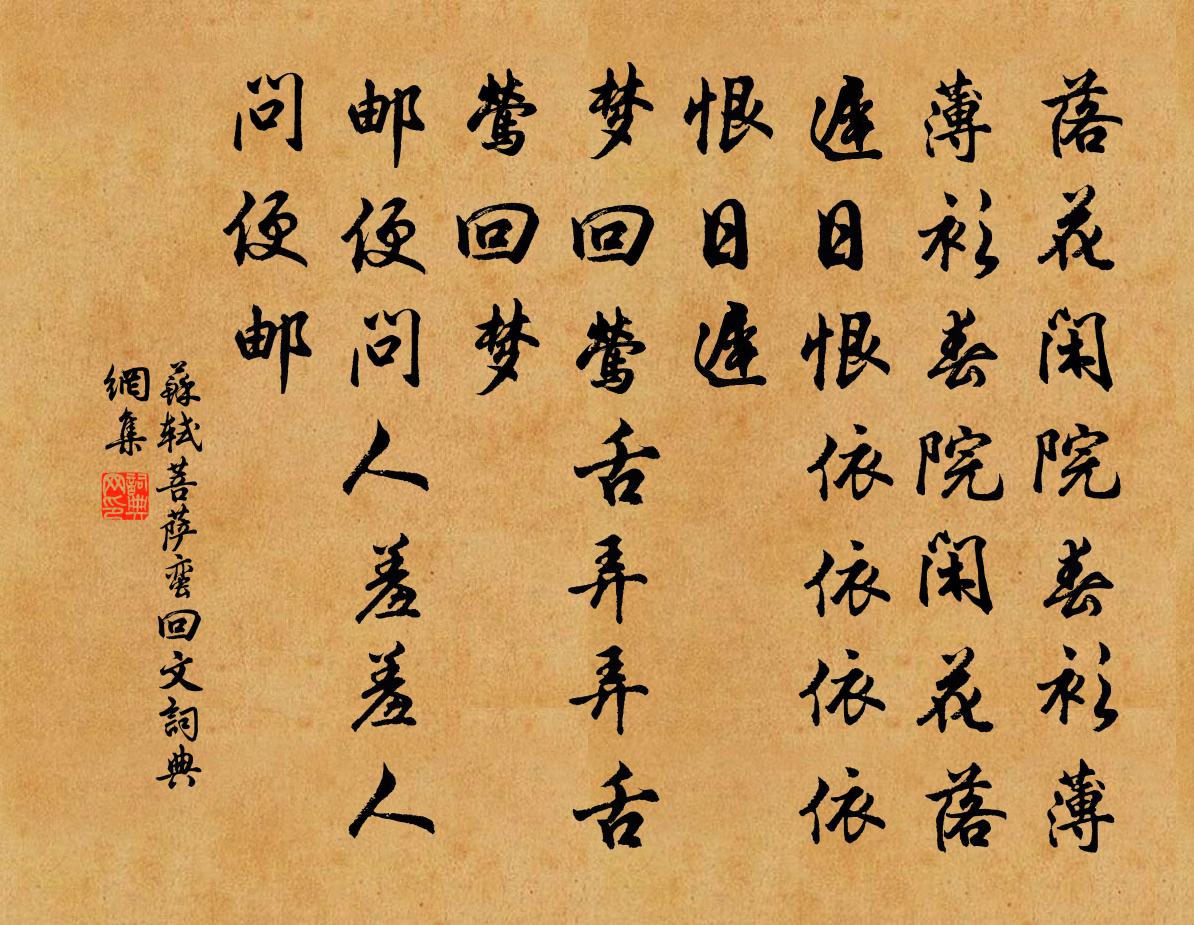 落花闲院春衫薄
薄衫春院闲花落
遲日恨依依
依依恨日遲
梦回莺舌弄
弄舌莺回梦
邮便问人羞
羞人问便邮
蘇軾菩萨蛮回文詞典
網集
詞典
网印